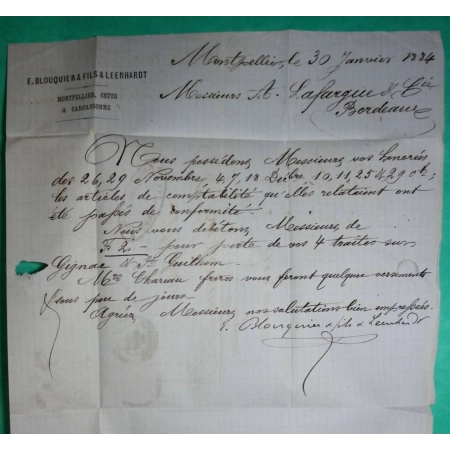 E. BLOUQUIER & FILS & LEENHARDT
MONTPELLIER, CETTE
& CARCASSONNE
Montpellier, le 30 Janvier 1884
Messieurs A. Lafargue & Cie
Bordeaux
Nous possédons, Messieurs, vos honorées
des 26, 29 Novembre 4, 7, 18 Décbre 10, 11, 25 & 29 ct;
les articles de comptabilité qu'elles relataient ont
été passés de conformité.
Nous vous débitons, Messieurs, de
F. 2. — pour perte de vos 4 traites sur
Gignac & St Guilhem.
Mrs Chareau frères vous feront quelque versements
sous peu de jours
Agréez, Messieurs, nos salutations bien empressées.
E. Blouquier & fils & Leenhardt